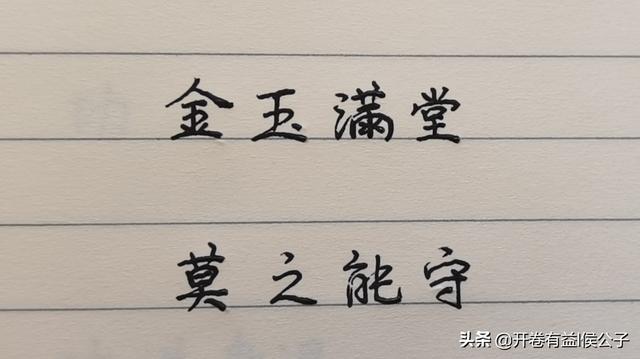 金玉满堂
莫之能守
头条 @开卷有益l侯公子